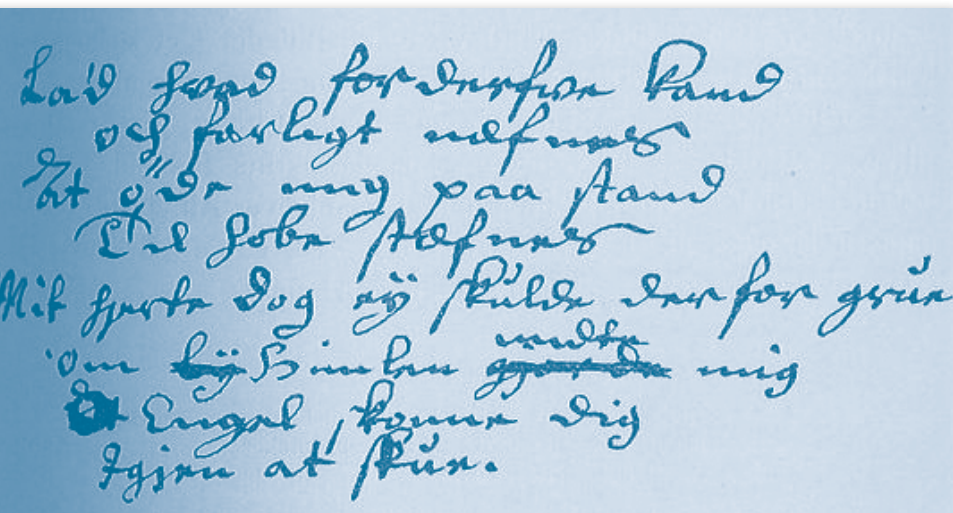 Lad hvad forderfve kand
och farligt næfnes
At öde mig paa stand
Til hobe stæfnes
Mit hjerte dog ey skulde derfor grue
om Himlen undte mig
Engel, konne dig
Igjen at skue.